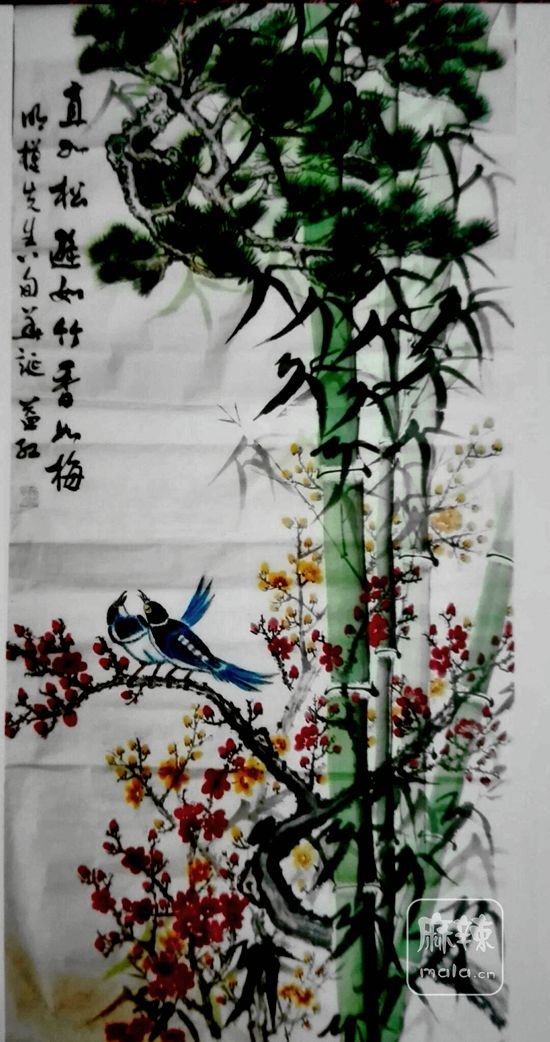 直如松如竹香如梅
明先生八旬華诞 益红
麻辣
mala.cn